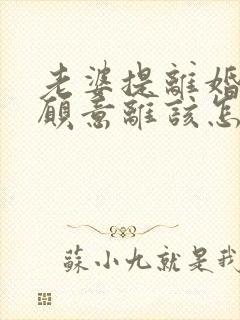 老婆提離婚
願意離該怎
蘇小九就是我